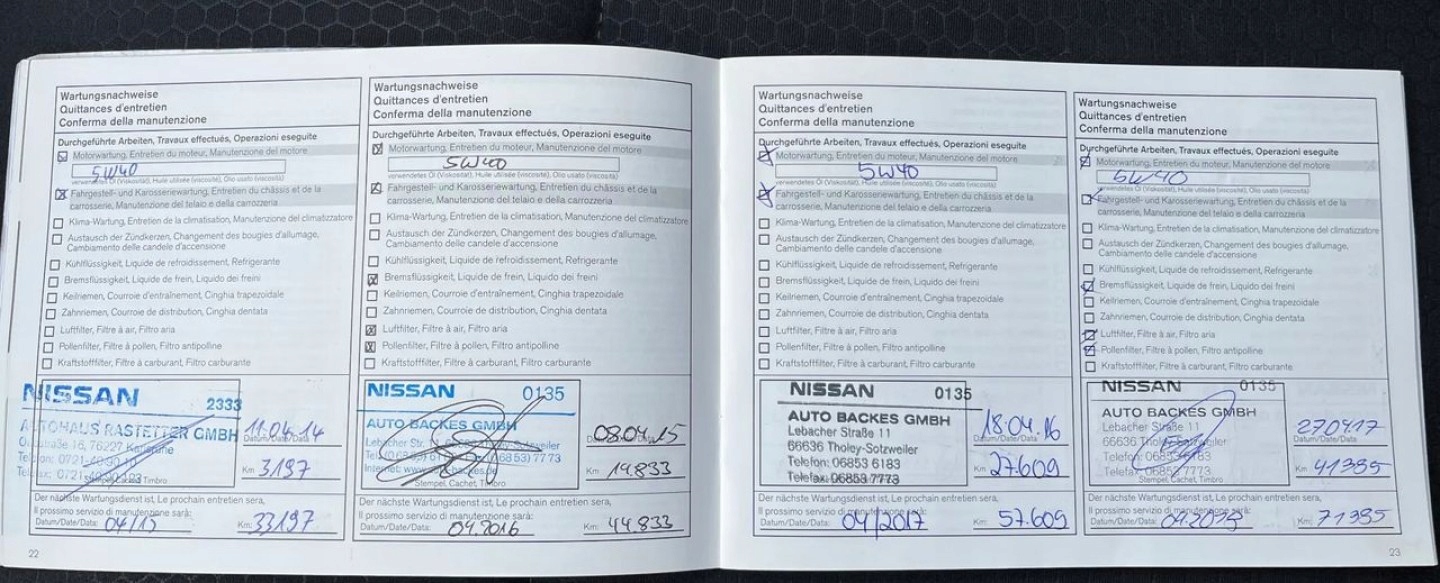 Wartungsnachweise
Quittances d'entretien
Conferma della manutenzione
Durchgeführte Arbeiten, Travaux effectués, Operazioni eseguite
Motorwartung, Entretien du moteur, Manutenzione del motore
5W40
verwendetes Öl (Viskosität), Huile utilisée (viscosité), Olio usato (viscosità)
Fahrgestell- und Karosseriewartung, Entretien du châssis et de la
carrosserie, Manutenzione del telaio e della carrozzeria
Klima-Wartung, Entretien de la climatisation, Manutenzione del climatizzatore
Austausch der Zündkerzen, Changement des bougies d'allumage,
Cambiamento delle candele d'accensione
Kühlflüssigkeit, Liquide de refroidissement, Refrigerante
Bremsflüssigkeit, Liquide de frein, Liquido dei freini
Keilriemen, Courroie d'entraînement, Cinghia trapezoidale
Zahnriemen, Courroie de distribution, Cinghia dentata
Luftfilter, Filtre à air, Filtro aria
Pollenfilter, Filtre à pollen, Filtro antipolline
Kraftstofffilter, Filtre à carburant, Filtro carburante
NISSAN 2333
AUTOHAUS RASTETTER GMBH
76227 Karlsruhe
11.04.14
Datum/Date/Data
Km 3197
Stempel, Cachet, Timbro
Der nächste Wartungsdienst ist, Le prochain entretien sera,
Il prossimo servizio di manutenzione sarà:
Datum/Date/Data: 04/15 Km: 33197
22
Wartungsnachweise
Quittances d'entretien
Conferma della manutenzione
Durchgeführte Arbeiten, Travaux effectués, Operazioni eseguite
Motorwartung, Entretien du moteur, Manutenzione del motore
5W40
verwendetes Öl (Viskosität), Huile utilisée (viscosité), Olio usato (viscosità)
Fahrgestell- und Karosseriewartung, Entretien du châssis et de la
carrosserie, Manutenzione del telaio e della carrozzeria
Klima-Wartung, Entretien de la climatisation, Manutenzione del climatizzatore
Austausch der Zündkerzen, Changement des bougies d'allumage,
Cambiamento delle candele d'accensione
Kühlflüssigkeit, Liquide de refroidissement, Refrigerante
Bremsflüssigkeit, Liquide de frein, Liquido dei freini
Keilriemen, Courroie d'entraînement, Cinghia trapezoidale
Zahnriemen, Courroie de distribution, Cinghia dentata
Luftfilter, Filtre à air, Filtro aria
Pollenfilter, Filtre à pollen, Filtro antipolline
Kraftstofffilter, Filtre à carburant, Filtro carburante
NISSAN 0135
AUTO BACKES GMBH
Lebacher Str.
08.04.15
Datum/Date/Data
Km 14.833
Stempel, Cachet, Timbro
Der nächste Wartungsdienst ist, Le prochain entretien sera,
Il prossimo servizio di manutenzione sarà:
Datum/Date/Data: 04.2016 Km: 44.833
Wartungsnachweise
Quittances d'entretien
Conferma della manutenzione
Durchgeführte Arbeiten, Travaux effectués, Operazioni eseguite
Motorwartung, Entretien du moteur, Manutenzione del motore
5W40
verwendetes Öl (Viskosität), Huile utilisée (viscosité), Olio usato (viscosità)
Fahrgestell- und Karosseriewartung, Entretien du châssis et de la
carrosserie, Manutenzione del telaio e della carrozzeria
Klima-Wartung, Entretien de la climatisation, Manutenzione del climatizzatore
Austausch der Zündkerzen, Changement des bougies d'allumage,
Cambiamento delle candele d'accensione
Kühlflüssigkeit, Liquide de refroidissement, Refrigerante
Bremsflüssigkeit, Liquide de frein, Liquido dei freini
Keilriemen, Courroie d'entraînement, Cinghia trapezoidale
Zahnriemen, Courroie de distribution, Cinghia dentata
Luftfilter, Filtre à air, Filtro aria
Pollenfilter, Filtre à pollen, Filtro antipolline
Kraftstofffilter, Filtre à carburant, Filtro carburante
NISSAN 0135
AUTO BACKES GMBH
Lebacher Straße 11
66636 Tholey-Sotzweiler
Telefon: 06853 6183
Telefax: 06853 7773
18.04.16
Datum/Date/Data
Km 27.609
Der nächste Wartungsdienst ist, Le prochain entretien sera,
Il prossimo servizio di manutenzione sarà:
Datum/Date/Data: 04/2017 Km: 57.609
Wartungsnachweise
Quittances d'entretien
Conferma della manutenzione
Durchgeführte Arbeiten, Travaux effectués, Operazioni eseguite
Motorwartung, Entretien du moteur, Manutenzione del motore
5W40
verwendetes Öl (Viskosität), Huile utilisée (viscosité), Olio usato (viscosità)
Fahrgestell- und Karosseriewartung, Entretien du châssis et de la
carrosserie, Manutenzione del telaio e della carrozzeria
Klima-Wartung, Entretien de la climatisation, Manutenzione del climatizzatore
Austausch der Zündkerzen, Changement des bougies d'allumage,
Cambiamento delle candele d'accensione
Kühlflüssigkeit, Liquide de refroidissement, Refrigerante
Bremsflüssigkeit, Liquide de frein, Liquido dei freini
Keilriemen, Courroie d'entraînement, Cinghia trapezoidale
Zahnriemen, Courroie de distribution, Cinghia dentata
Luftfilter, Filtre à air, Filtro aria
Pollenfilter, Filtre à pollen, Filtro antipolline
Kraftstofffilter, Filtre à carburant, Filtro carburante
NISSAN 0135
AUTO BACKES GMBH
Lebacher Straße 11
66636 Tholey-Sotzweiler
Telefon: 06853 6183
Telefax: 06853 7773
Stempel, Cachet, Timbro
270417
Datum/Date/Data
Km 41385
Der nächste Wartungsdienst ist, Le prochain entretien sera,
Il prossimo servizio di manutenzione sarà:
Datum/Date/Data: 04.2018 Km: 71385
23